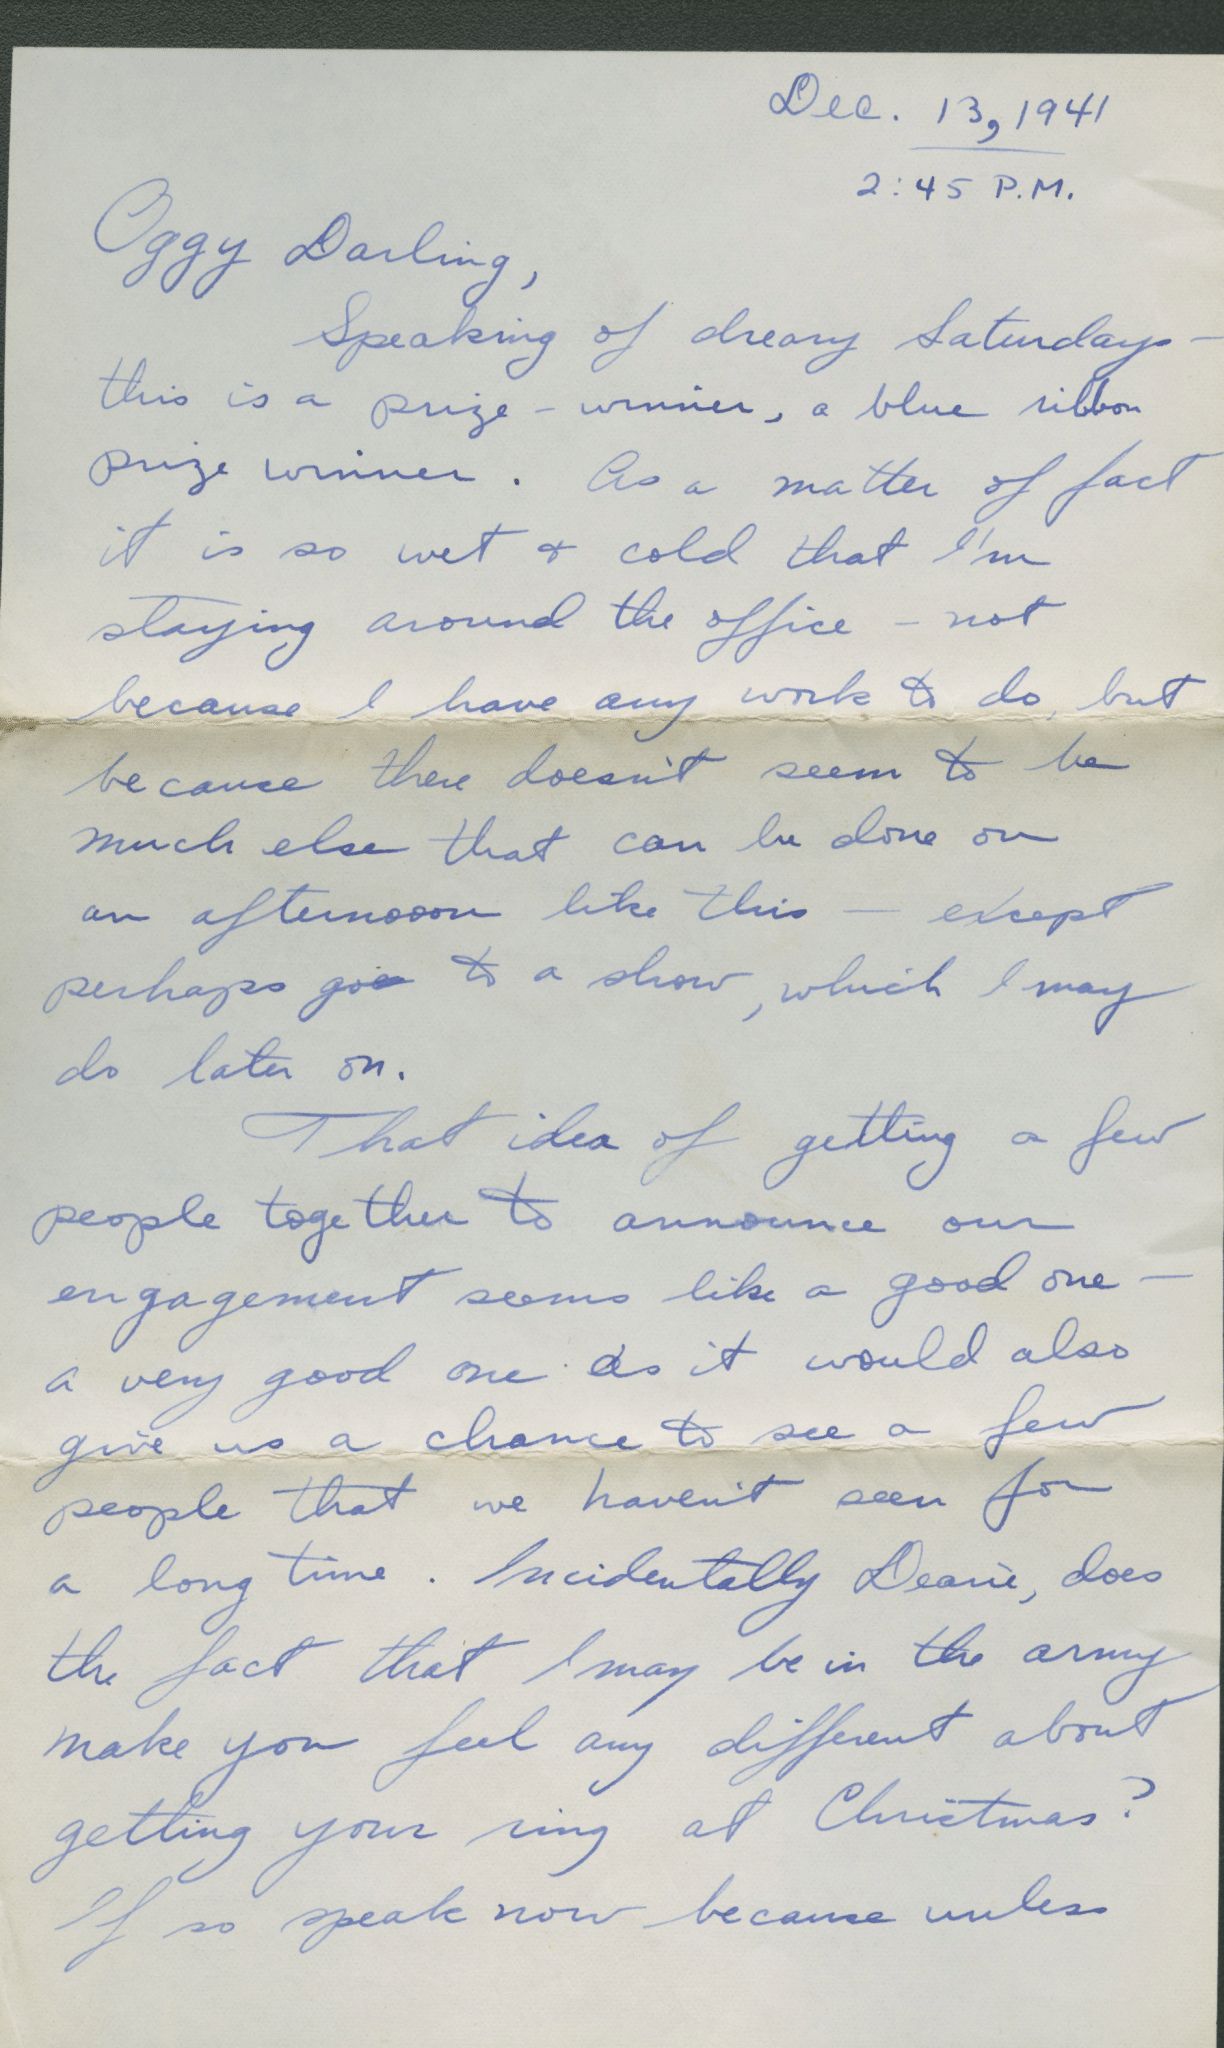 Dec. 13, 1941
2:45 P.M.
Oggy Darling,
Speaking of dreary Saturdays -
this is a prize - winner, a blue ribbon
prize winner. As a matter of fact
it is so wet & cold that I'm
staying around the office - not
because I have any work to do, but
because there doesn't seem to be
much else that can be done on
an afternooon like this — except
perhaps go to a show, which I may
do later on.
That idea of getting a few
people together to announce our
engagement seems like a good one —
a very good one as it would also
give us a chance to see a few
people that we haven't seen for
a long time. Incidentally Dearie, does
the fact that I may be in the army
make you feel any different about
getting your ring at Christmas?
If so speak now because unless